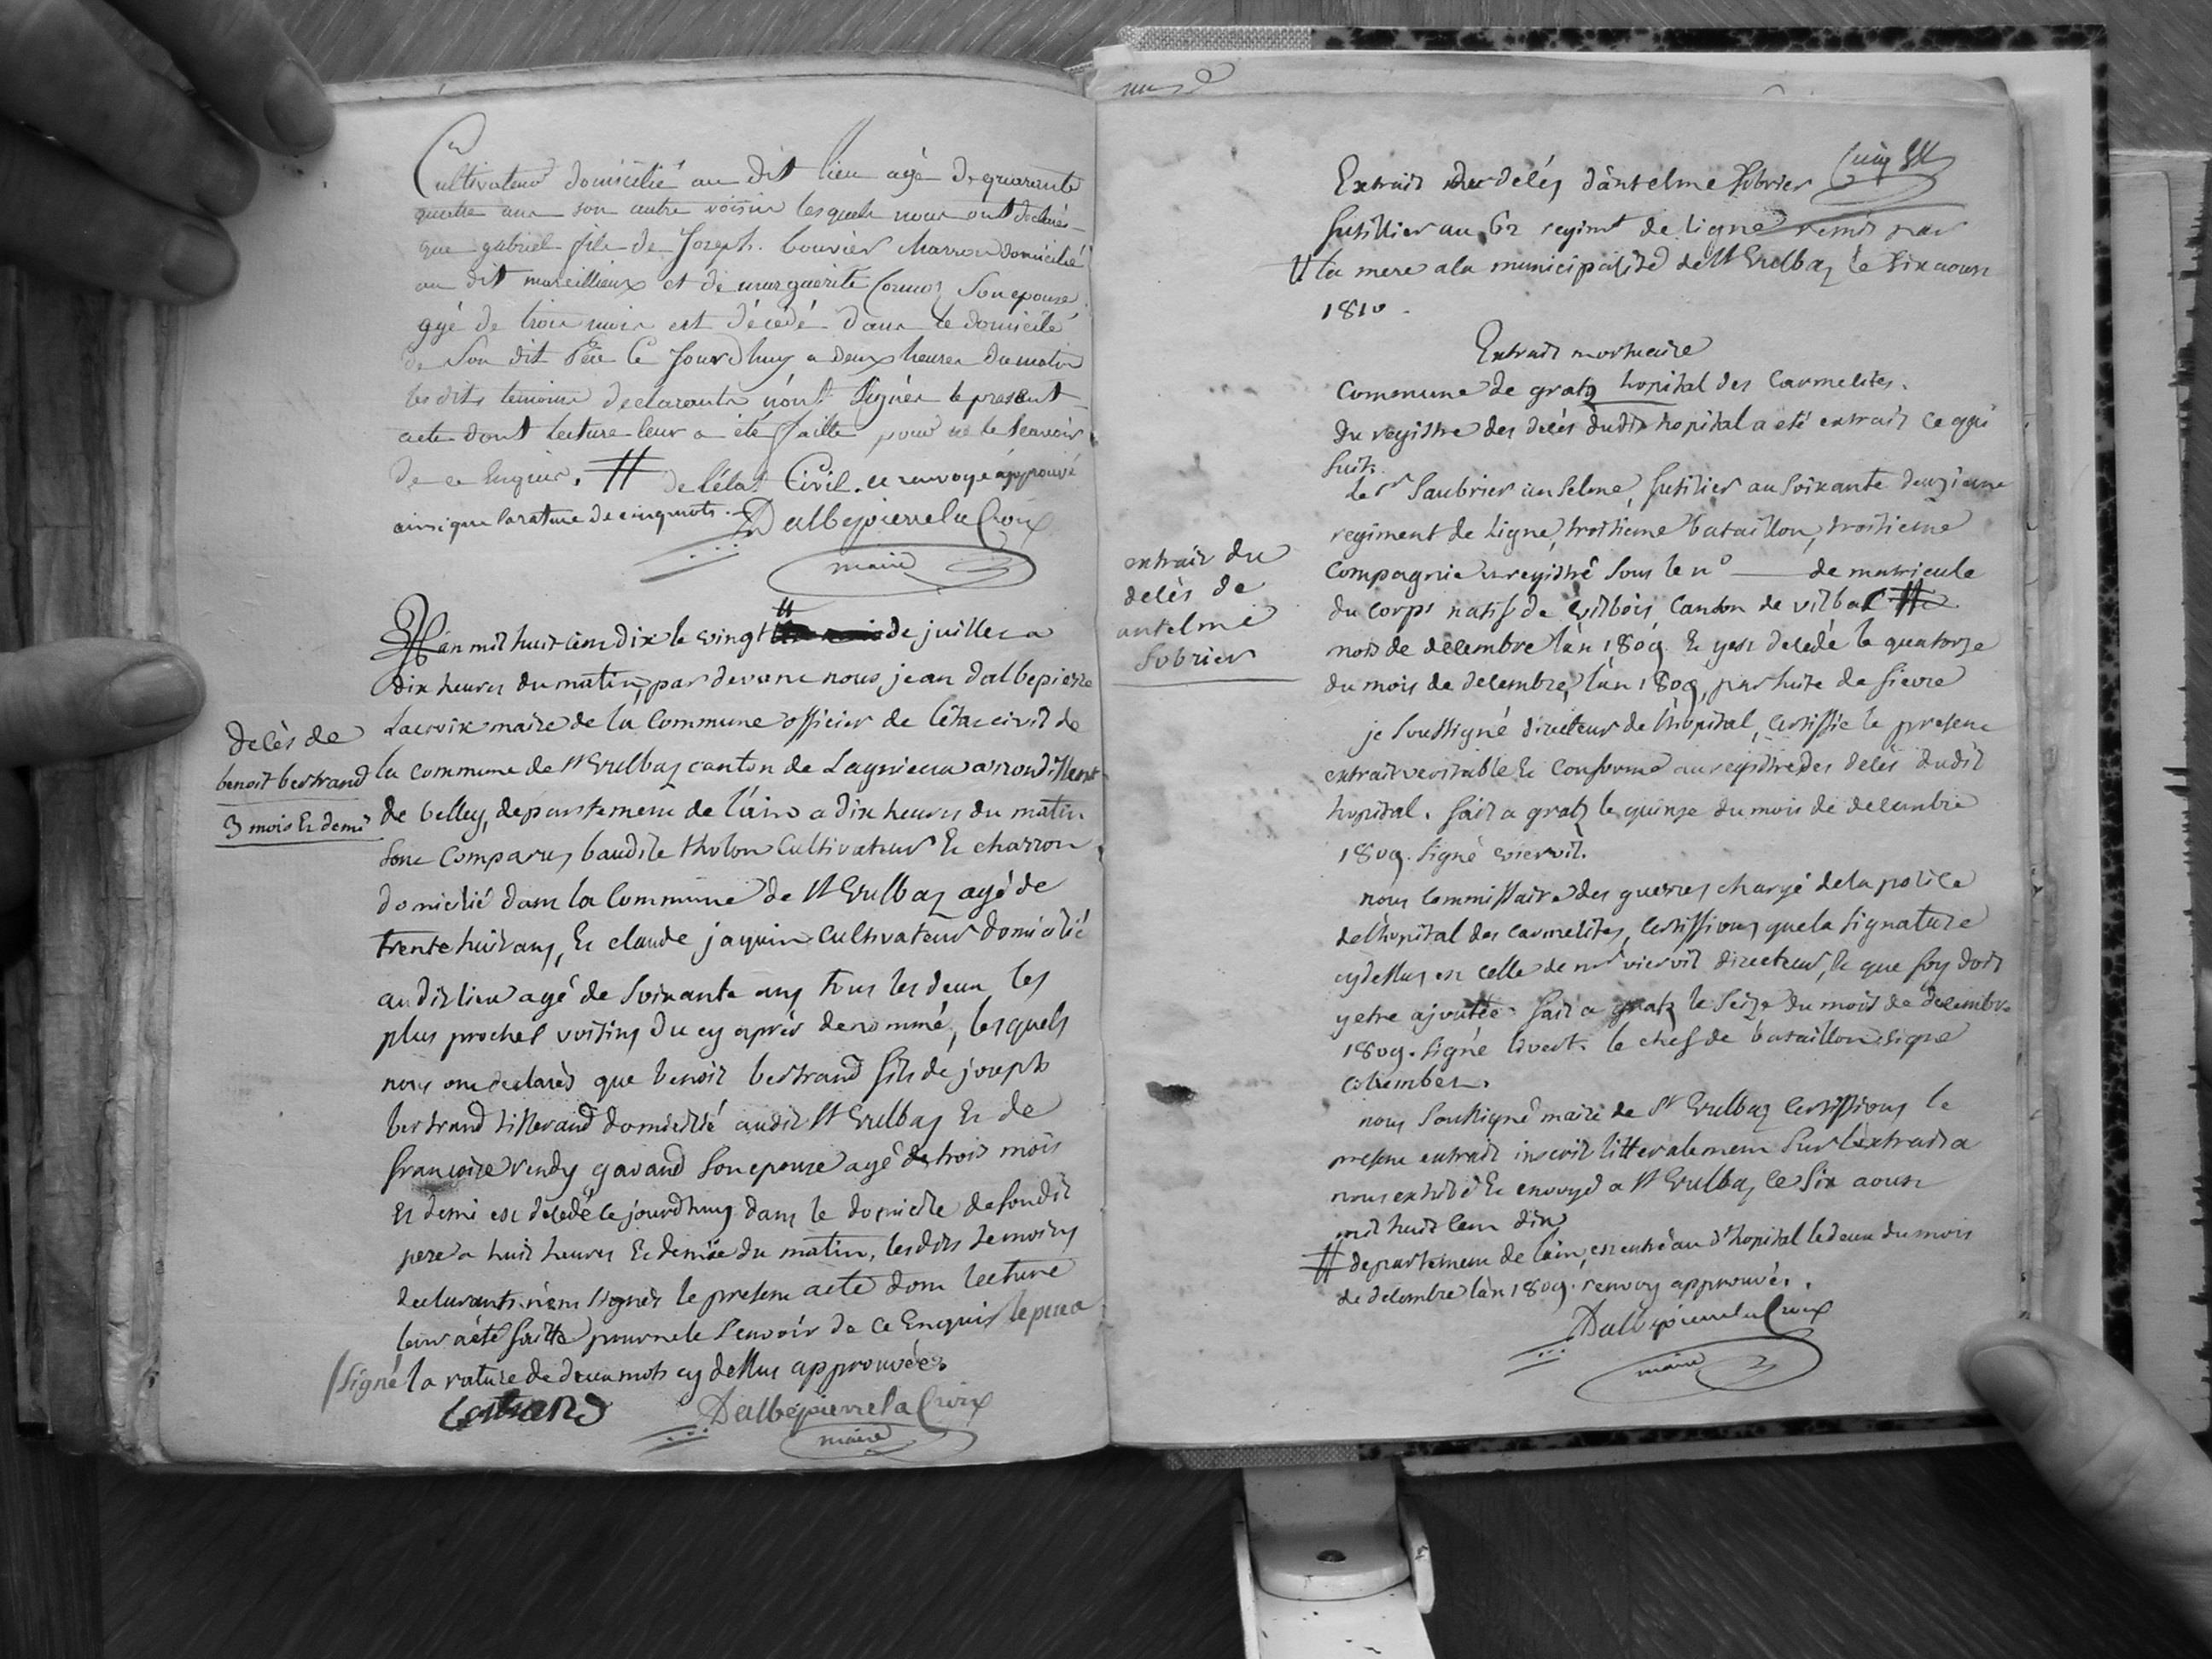 Cultivateur domicilié au dit lieu agé de quarante
quatre ans son autre voisin lesquels nous ont declarés
que gabriel fils de Joseph bouvier charron domicilié
au dit marcillieux et de marguerite Cormoz Son epouse
agé de trois mois est décédé dans le domicile
de Son dit Père Ce Jourdhuy a deux heures du matin
les dits temoins declarants n'ont Signés le present
acte dont lecture leur a été faitte pour ne le scavoir
de ce Enquis. # de l'état Civil. ce renvoye approuvé
ainsi que la rature de cinq mots. Dalbepierre la Croix
maire
decès de
benoit bertrand
3 mois et demi
L'an mil huit cent dix le vingt # de juillet a
dix heures du matin, par devant nous jean dalbepierre
Lacroix maire de la Commune officier de l'état civil de
la commune de St Vulbaz canton de Lagnieux arrondissent
de belley, departement de l'ain a dix heures du matin
Sont Comparus baudile tholon Cultivateur et charron
domicilié dans la Commune de St Vulbaz agé de
trente huit ans, et claude jaquin Cultivateur domicilié
au dit lieu agé de Soixante ans tous les deux les
plus proches voisins du cy après denommé, lesquels
nous ont declarés que benoit bertrand fils de joseph
bertrand tisserand domicilié audit St Vulbaz et de
francoise gavand Son epouse agé de trois mois
et demi est décédé ce jourdhuy dans le domicile de Son dit
pere a huit heures et demie du matin, lesdits temoins
declarants n'ont Signés le present acte dont lecture
leur a été faitte pour ne le Scavoir de ce Enquis le pere a
Signé la rature de deux mots cy dessus approuvée.
bertrand Dalbepierre la Croix
maire
Extrait de decés d'antelme Sobrier
fusillier au 62 regimt de ligne remis par
la mere a la municipalité de St Vulbaz le Six aoust
1810.
Extrait mortuaire
Commune de gratz hopital des Carmelites.
Du registre des decés dudit hopital a eté extrait ce qui
Suit.
extrait du
decès de
antelme
Sobrier
le Sr Saubrier anselme, fusilier au Soixante deuzieme
regiment de Ligne, troisieme bataillon, troisieme
Compagnie enregistré Sous le n° — de matricule
du corps natif de vilbois Canton de vilbas #
mois de decembre l'an 1809 et y est decedé le quatorze
du mois de decembre, l'an 1809, par suite de fievre
je Soussigné directeur de l'hopital, certiffie le present
extrait veritable et Conforme au registre des decés dudit
hopital. fait a gratz le quinze du mois de decembre
1809. Signé viervil.
nous Commissaire des guerres chargé de la police
de l'hopital des Carmelites, Certiffions que la Signature
cy dessus est celle de mr viervil directeur, et que foy doit
y etre ajoutée. fait a gratz le Seize du mois de decembre
1809. Signé le chef de bataillon signé
nous Soussigné maire de St Vulbaz Certiffions le
present extrait inscrit litteralement Sur l'extrait a
nous exhibé et envoyé a St Vulbaz le Six aoust
mil huit cent dix
# departement de l'ain, est entré au dt hopital le deux du mois
de decembre l'an 1809. renvoy approuvé.
Dalbepierre la Croix
maire